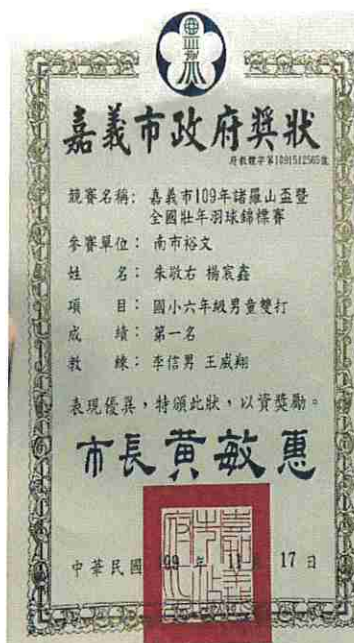 嘉義市政府獎狀
府教體字第1091512565號
競賽名稱: 嘉義市109年諸羅山盃暨
全國壯年羽球錦標賽
參賽單位: 南市裕文
姓 名: 朱敬右 楊宸鑫
項 目: 國小六年級男童雙打
成 績: 第一名
教 練: 李信男 王威翔
表現優異,特頒此狀,以資獎勵。
市長黃敏惠
中華民國 109 年 11 月 17 日